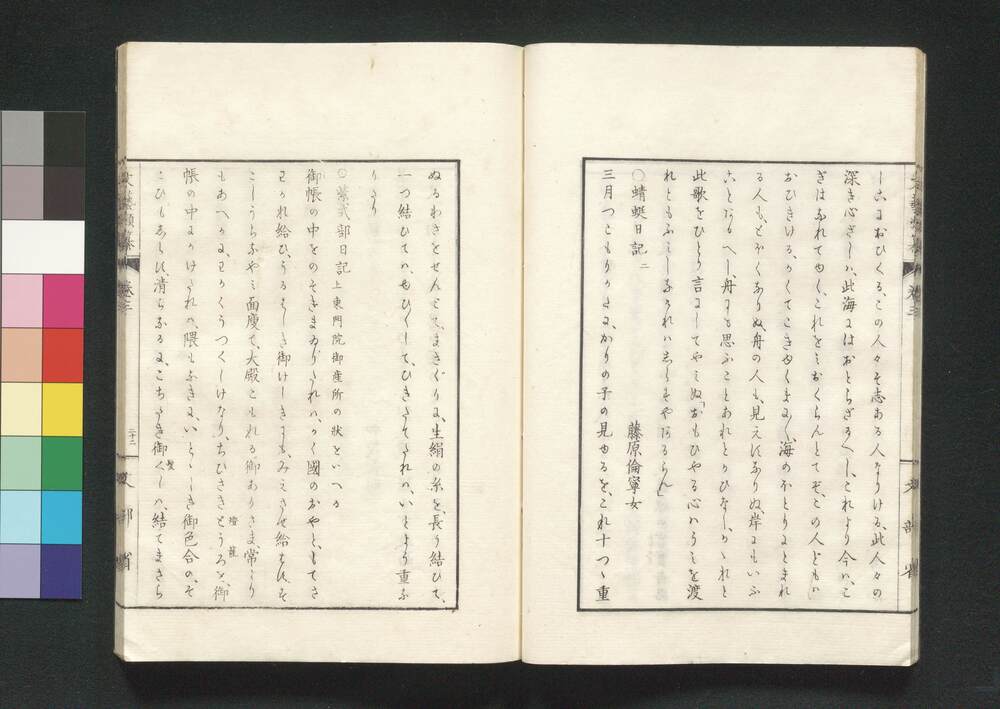 しこまおひくる、この人々そ志ある人なりける、此人々の
深き心ざしハ、此海にはおとらざるへし、これより今ハ、こ
ぎはなれてゆく、これをミおくらんとてぞ、この人どもハ
おひきける、かくてこきゆくまに〱、海のほとりにとまれ
る人も、とほくなりぬ、舟の人も、見えになりぬ、岸にもいふ
ことあるへし、舟にも思ふことあれとかひなし、かゝれと
此歌をひとり言にしてやミぬ「おもひやる心ハうミを渡
れともふミしなけれハ志らすやあるらん」
〇蜻蜓日記 二
藤原倫寧女
三月つこもりかたに、かりの子の見ゆるを、これ十つゝ重
ぬるわさをせんとて、まさぐりに、生絹の糸を、長う結ひて、
一つ結ひてハ、ゆひくして、ひきたてたれハ、いとよう重ふ
りたり
〇紫式部日記 上東門院御産所の狀をいへる
御帳の中をのそきまゐりたれハ、かく國のおやと、もてさ
わかれ給ひ、うるはしき御けしきにも、みえさせ給はす、す
こしうちなやミ面瘦て、大殿こもれる御ありさま常より
もあへかに、わかくうつくしけなり、ちひさきとうろを、御
燈籠
帳の中にかけたれハ、隈もなきに、いとゝしき御色合の、そ
こひもしらす、清らなるに、こちたき御くしハ、結てまさら
髮
卷三
二十二
文部省
文部省